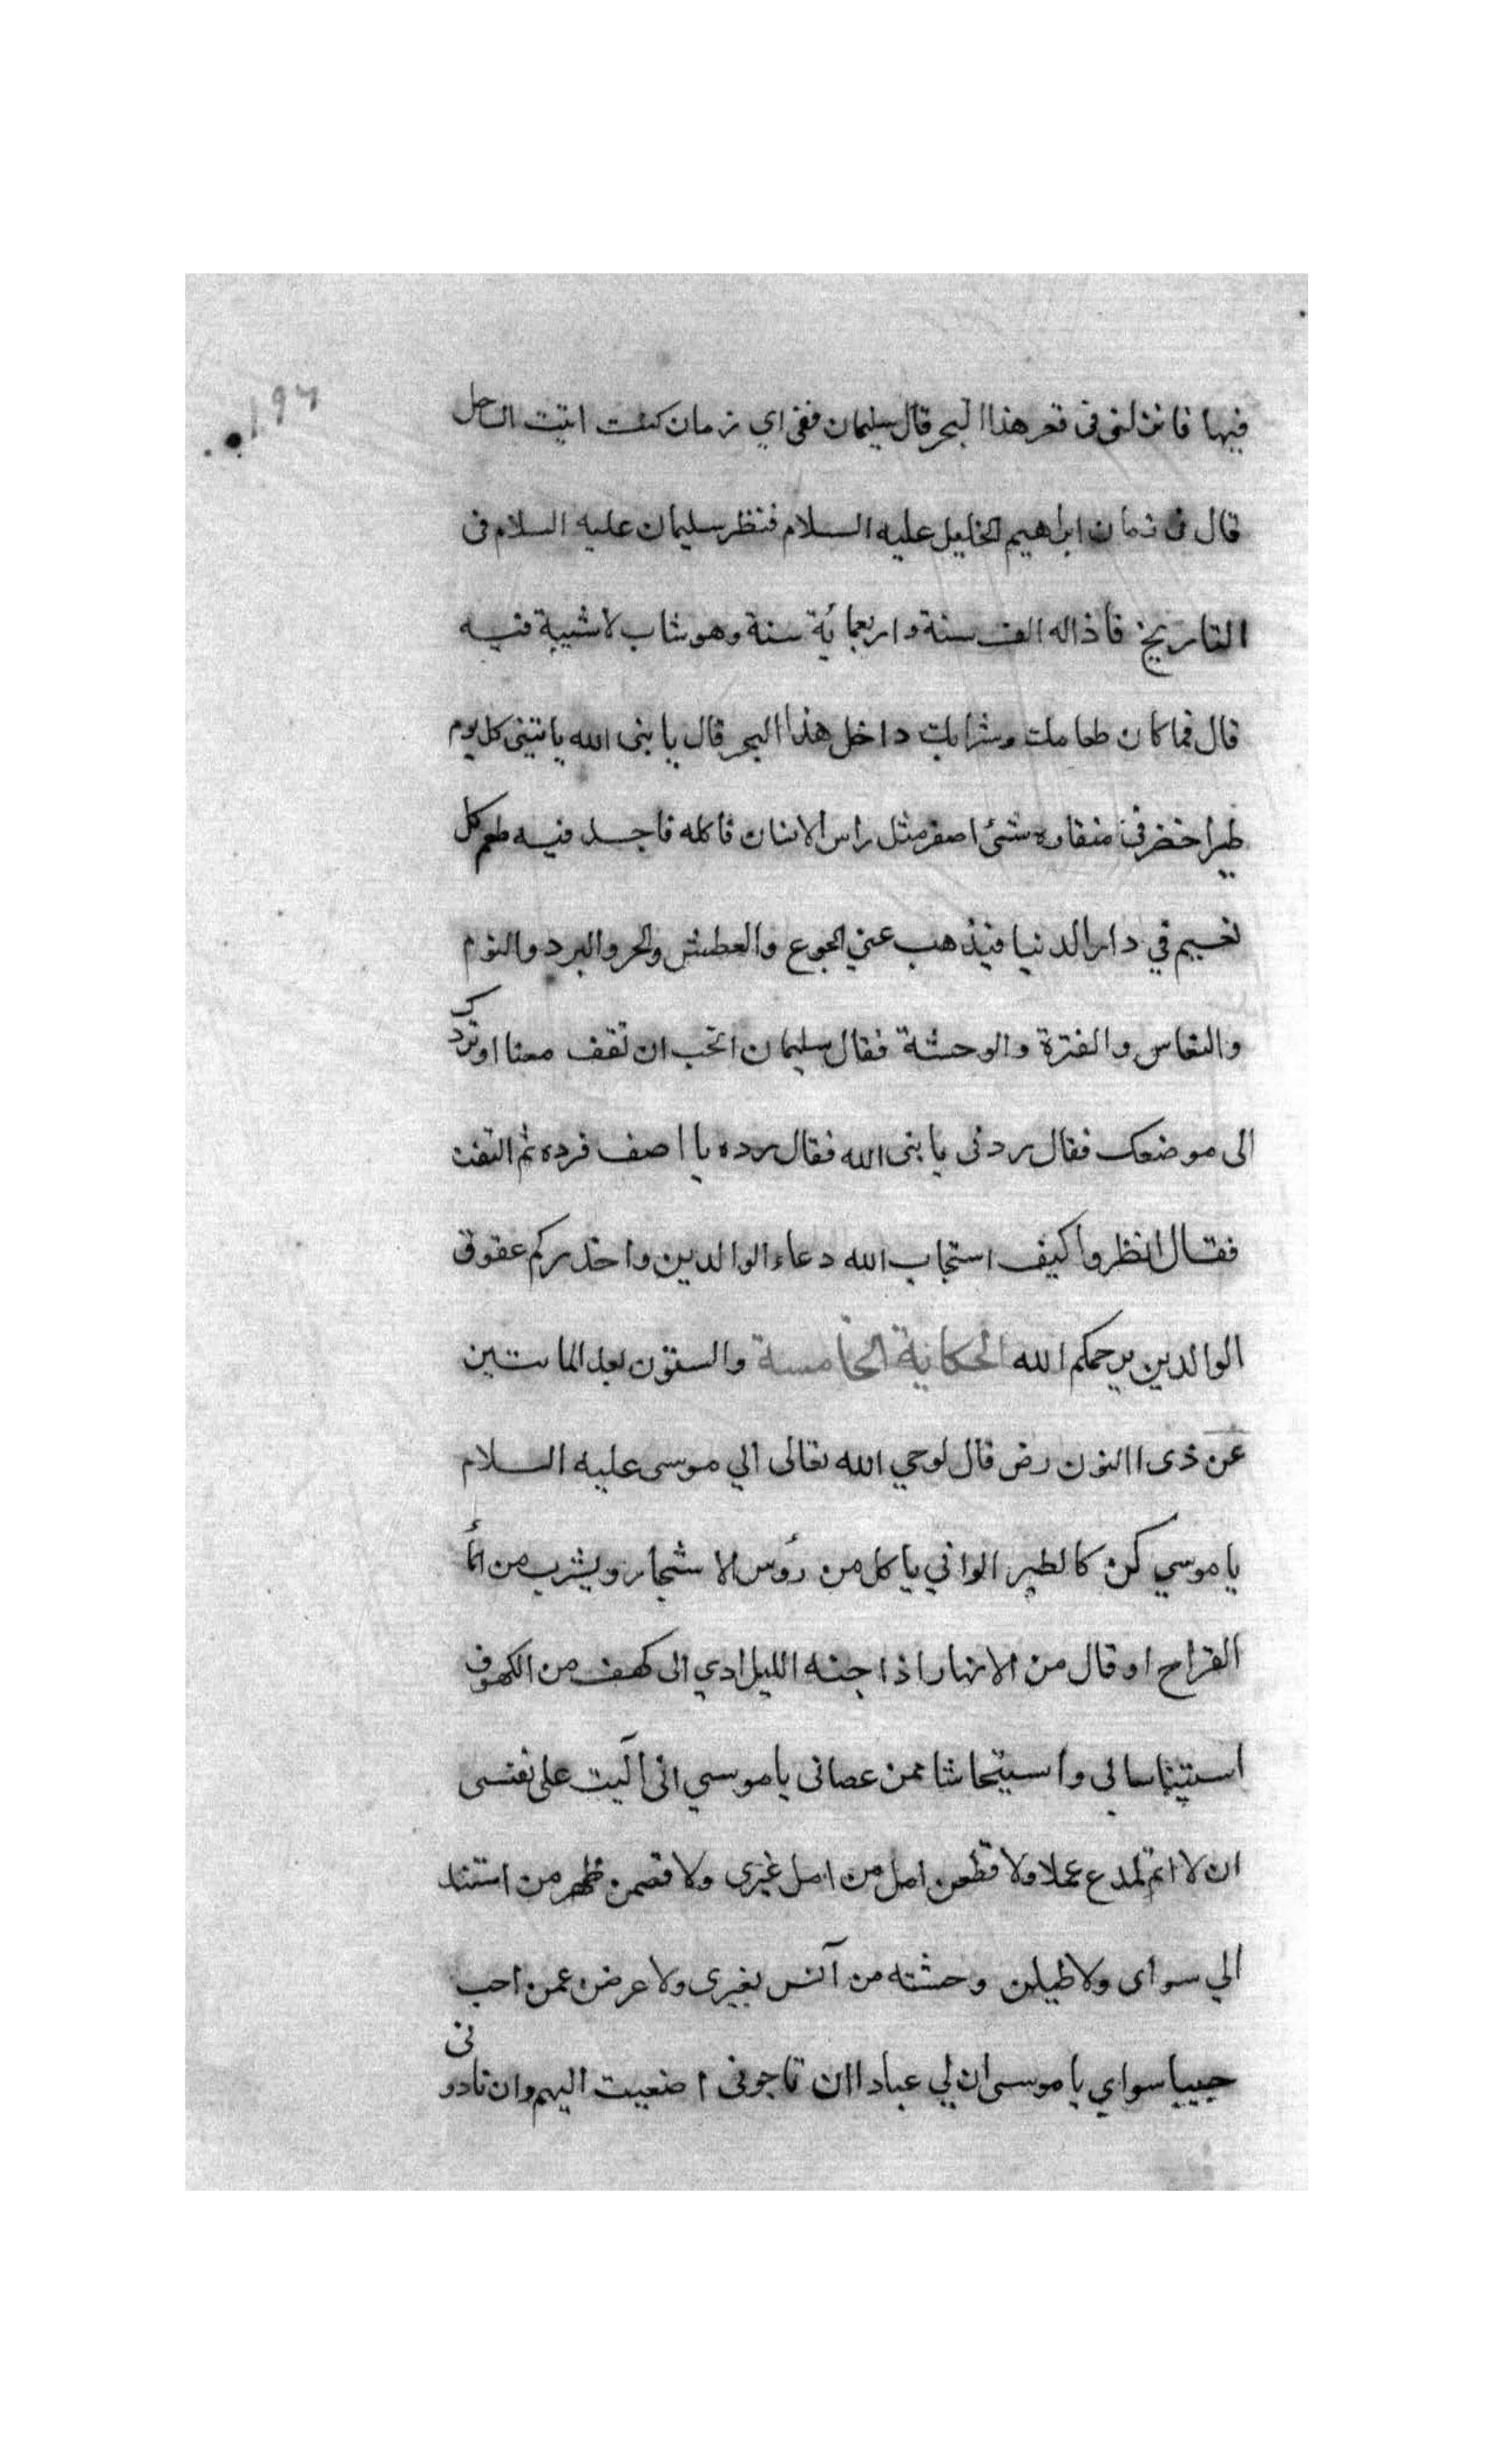 ١٩٦
فيها فانزلنى فى قعر هذا البحر قال سليمان ففى اي زمان كنت اتيت الساحل
قال فى زمان ابراهيم الخليل عليه السلام فنظر سليمان عليه السلام فى
التاريخ فاذا له الف سنة واربعمائة سنة وهو شاب لا شيبة فيه
قال فما كان طعامك وشرابك داخل هذا البحر قال يا نبى الله ياتينى كل يوم
طير اخضر فى منقاره شئ اصفر مثل راس الانسان فاكله فاجد فيه طعم كل
نعيم في دار الدنيا فيذهب عني الجوع والعطش والحر والبرد والنوم
والنعاس والفترة والوحشة فقال سليمان اتحب ان تقف معنا او نردك
الى موضعك فقال ردنى يا نبى الله فقال رده يا اصف فرده ثم التفت
فقال انظروا كيف استجاب الله دعاء الوالدين واحذركم عقوق
الوالدين يرحمكم الله الحكاية الخامسة والستون بعد المائتين
عن ذى االنون رض قال اوحي الله تعالى الي موسى عليه السلام
يا موسي كن كالطير الواني ياكل من رؤس الاشجار ويشرب من الماء
القراح او قال من الانهار اذا جنه الليل اوي الى كهف من الكهوف
استيناسا لي واستيحاشا ممن عصانى يا موسي انى آليت على نفسى
ان لا اتم لمدع عملا ولا قطعن امل من امل غيرى ولا قصمن ظهر من استند
الي سواى ولاطيلن وحشته من آنس بغيرى ولا عرضن عمن احب
حبيبا سواي يا موسى ان لي عبادا ان ناجونى اصغيت اليهم وان نادونى